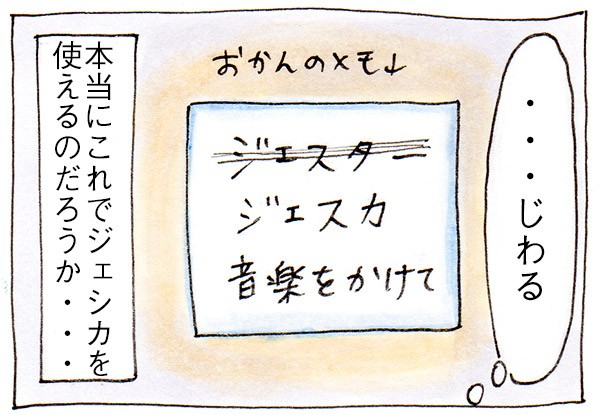 ・・・じわる
おかんのメモ↓
ジェスター
ジェスカ
音楽をかけて
本当にこれでジェシカを
使えるのだろうか・・・